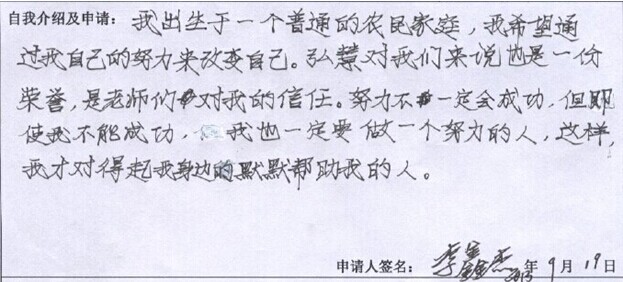 自我介绍及申请：我出生于一个普通的农民家庭，我希望通
过我自己的努力来改变自己。弘慧对我们来说也是一份
荣誉，是老师们对我的信任。努力不一定会成功，但即
使我不能成功，我也一定要做一个努力的人，这样，
我才对得起我身边的默默帮助我的人。
申请人签名：李鑫杰 2015年9月19日